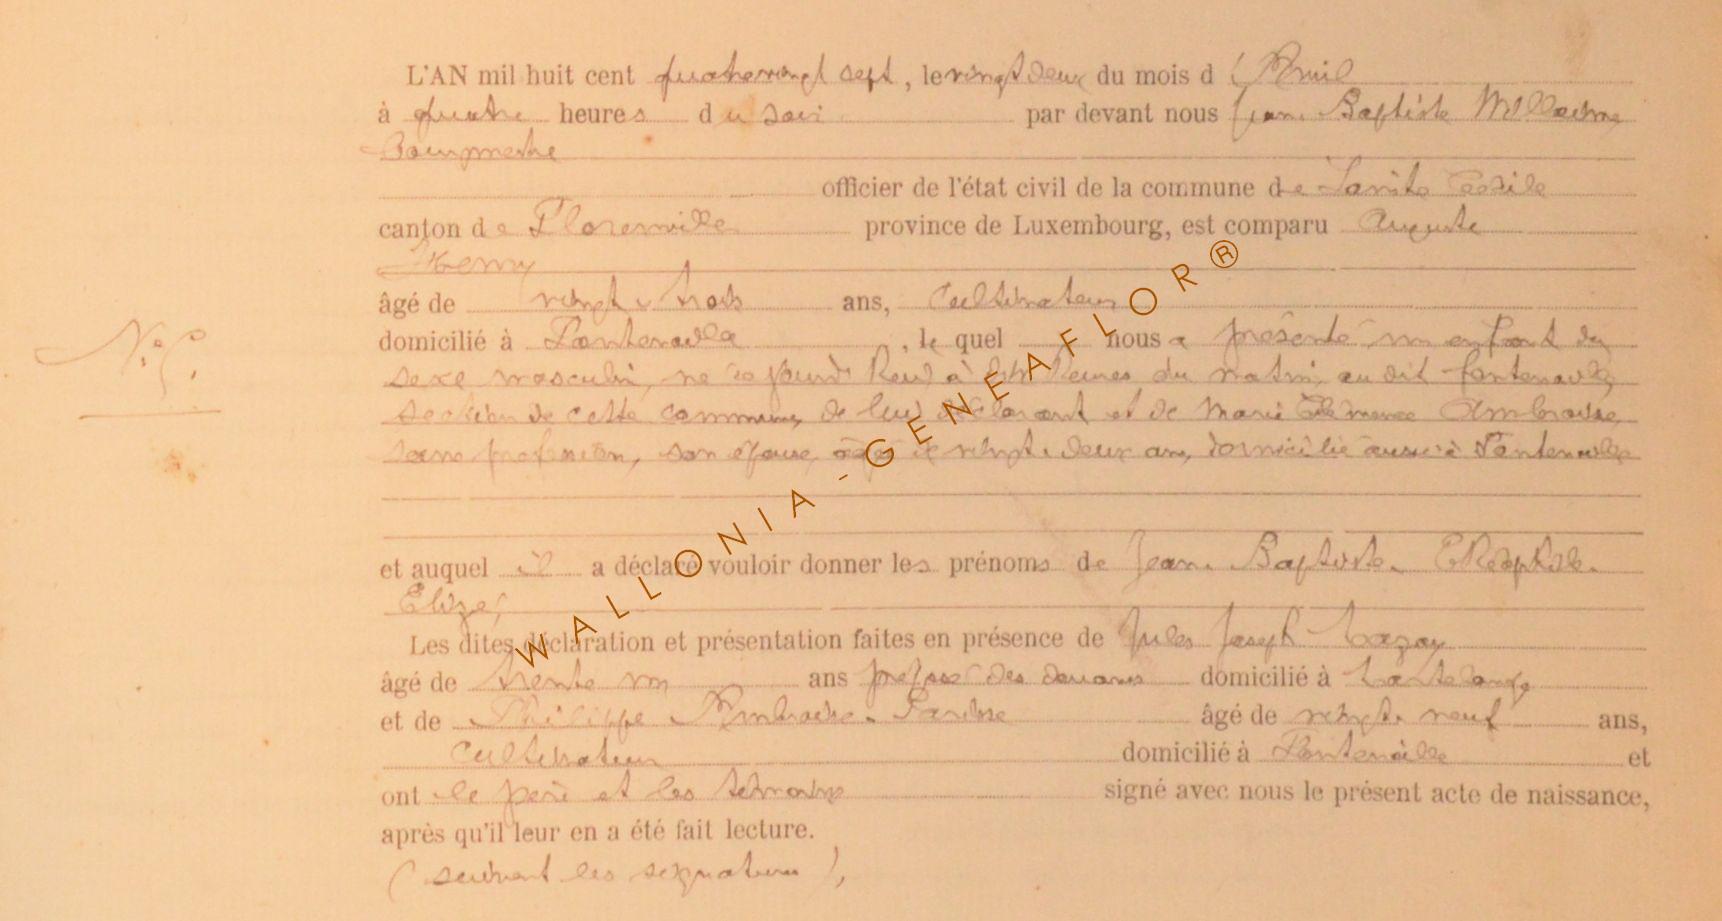 L'AN mil huit cent quatrevingt sept, le vingt deux du mois d'Avril
à quatre heures du soir par devant nous Jean Baptiste
Bourgmestre
officier de l'état civil de la commune de Sainte Cécile
canton de Florenville province de Luxembourg, est comparu Auguste
Henry
âgé de vingt trois ans, Cultivateur
N° 5.
domicilié à Fontenoille, le quel nous a présenté un enfant du
sexe masculin, né ce jourd'hui à heures du matin, au dit fontenoille
section de cette commune, de lui déclarant et de Marie Clémence Ambroise,
sans profession, son épouse, âgée de vingt deux ans, domiciliée aussi à Fontenoille
et auquel il a déclaré vouloir donner les prénoms de Jean Baptiste Théophile
Elizé,
Les dites déclaration et présentation faites en présence de Jules Joseph Lazay
âgé de trente un ans préposé des douanes domicilié à
et de Philippe Ambroise âgé de vingt neuf ans,
cultivateur domicilié à Fontenoille et
ont le père et les témoins signé avec nous le présent acte de naissance,
après qu'il leur en a été fait lecture.
(suivent les signatures),
WALLONIA-GENEAFLOR®